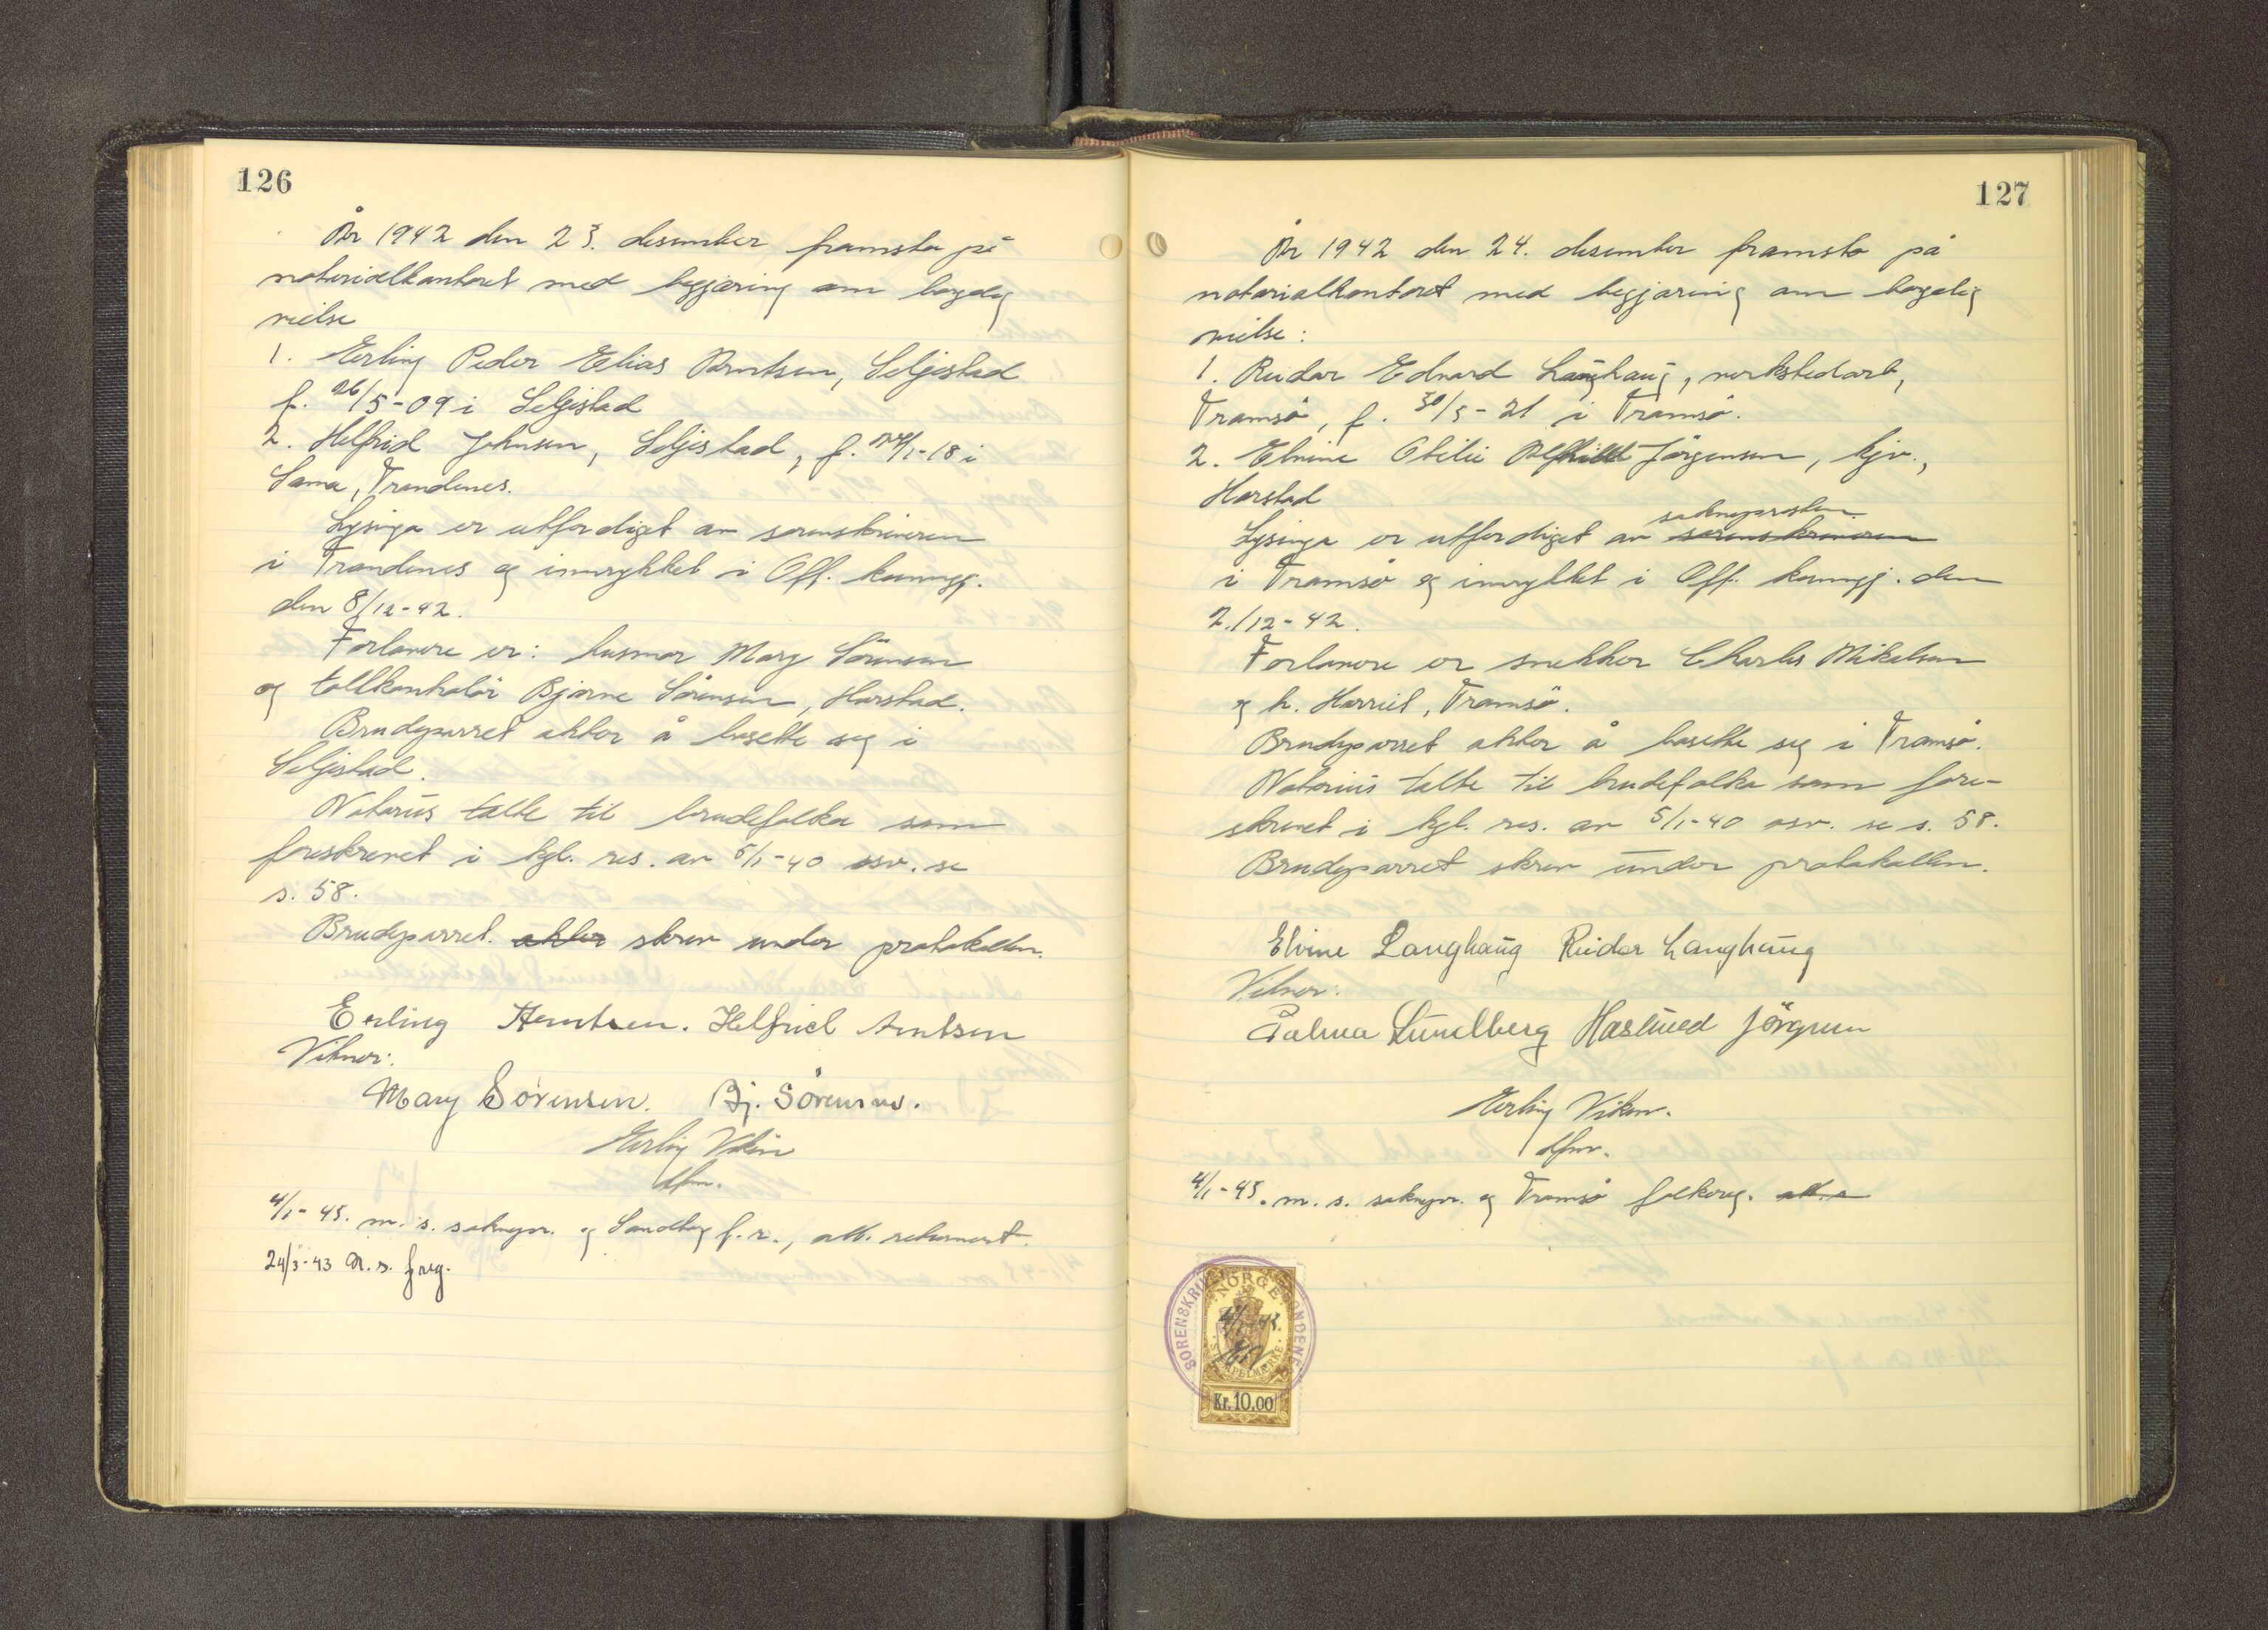 126
År 1942 den 23. desember framsto på
notarialkontoret med begjæring om borgelig
vielse
1. Erling Peder Elias Arntsen, Seljestad
f. 26/5-09 i Seljestad
2. Helfrid Johnsen, Seljestad, f. /1-18 i
Sama, Trondenes.
Lysinga er utferdiget av sorenskriveren
i Trondenes og innrykket i Off. kunngj.
den 8/12-42.
Forlovere er: husmor Mary Sörensen
og tollkontrolör Bjarne Sörensen, Harstad.
Brudeparret akter å bosette seg i
Seljestad.
Notarius talte til brudefolka som
foreskrevet i kgl. res. av 5/1-40 osv. se
s. 58.
Brudeparret. akter skrev under protokollen.
Erling Arntsen. Helfrid Arntsen
Vitner:
Mary Sörensen. Bj. Sörensen.
Erling Viken
dfm.
4/1-43. m. s. soknepr. og Sandtorg f.r., att. returnert.
24/3-43 m. s. freg.
127
År 1942 den 24. desember framsto på
notarialkontoret med begjæring om borgelig
vielse:
1. Reidar Edvard Langhaug, verkstedarb,
Tromsö, f. 30/5-21 i Tromsö.
2. Elvine Otilie Alfhild Jörgensen, hjv.,
Harstad
sokneprosten
Lysinga er utferdiget av sorenskriveren
i Tromsö og innrykket i Off. kunngj. den
2./12-42.
Forlovere er snekker Charles Mikalsen
og h. Harriet, Tromsö.
Brudeparret akter å bosette seg i Tromsö.
Notarius talte til brudefolka som fore-
skrevet i kgl. res. av 5/1-40 osv. se s. 58.
Brudeparret skrev under protokollen.
Elvine Langhaug Reidar Langhaug
Vitner:
Palma Lundberg Haslued Jörgensen
Erling Viken.
dfm.
4/1-43. m. s. soknepr. og Tromsö folkereg.
SORENSKRI ONDENES
NORGE
4/1-43.
STEMPELMERKE
Kr. 10.00